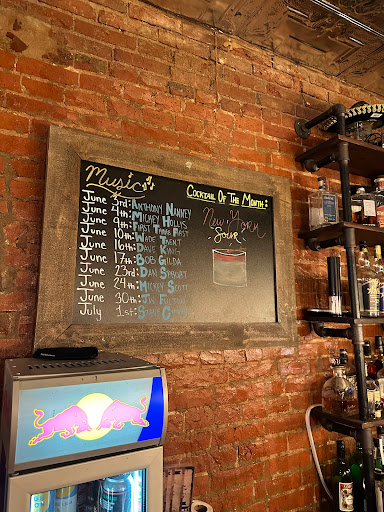 Music
June 3rd: Anthony Nanney
June 4th: Mickey Hills
June 9th: First Time First
June 10th: Wade Trent
June 16th: Dave King
June 17th: Bob Gilda
June 23rd: Dan Stewart
June 24th: Mickey Scott
June 30th: Jim Fulton
July 1st:
Cocktail Of The Month:
New York
Sour